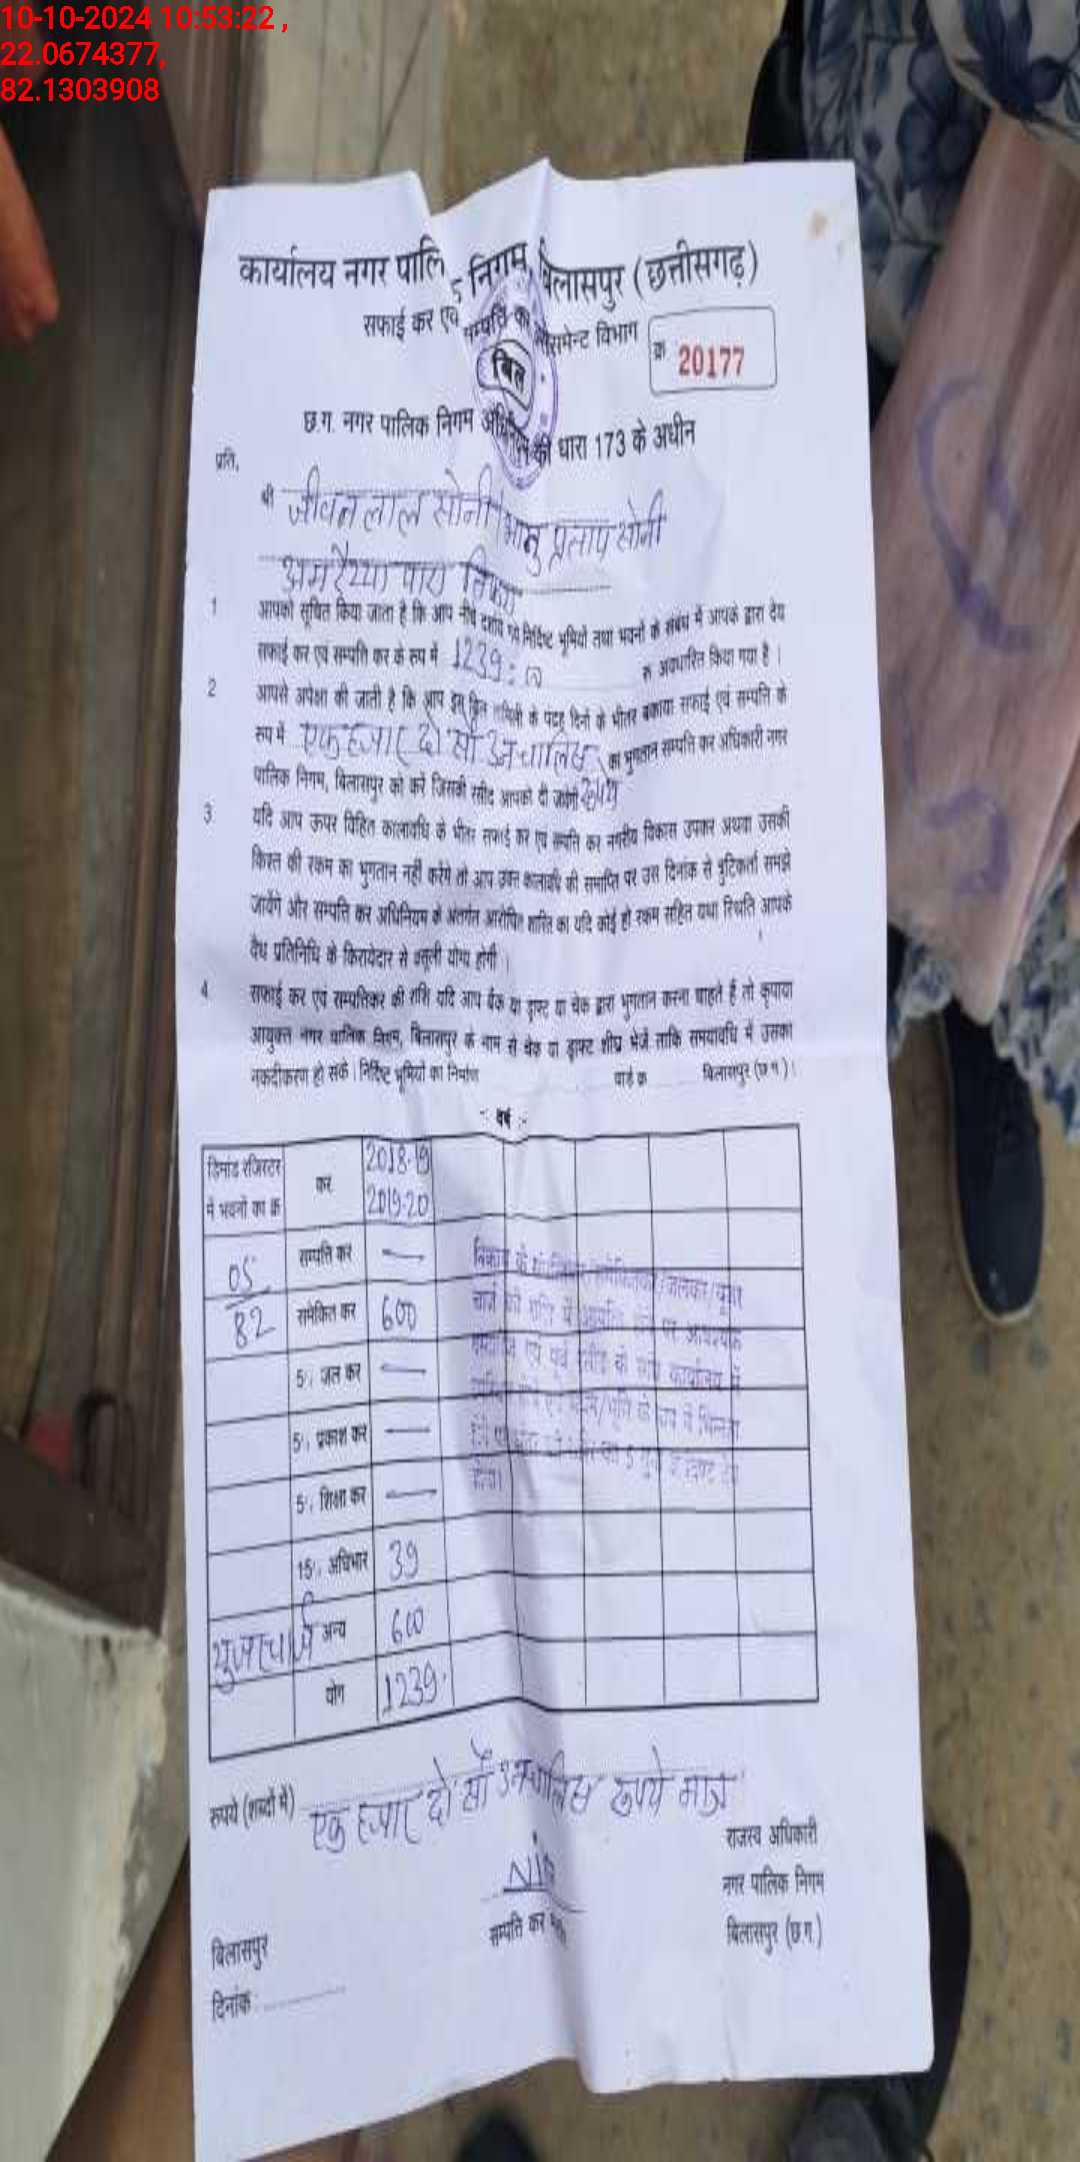 10-10-2024 10:53:22 ,
22.0674377,
82.1303908
कार्यालय नगर पालि निगम, बिलासपुर (छत्तीसगढ़)
सफाई कर एवं सम्पत्ति कर विभाग
क्र 20177
बिल
छ.ग. नगर पालिक निगम की धारा 173 के अधीन
प्रति,
श्री जीवन लाल सोनी / भानु प्रताप सोनी
1 आपको सूचित किया जाता है कि आप नीचे निर्दिष्ट भूमियों तथा भवनों के संबंध में आपके द्वारा देय
सफाई कर एवं सम्पत्ति कर के रूप में 1239 रू अवधारित किया गया है ।
2 आपसे अपेक्षा की जाती है कि आप इस बिल के पंद्रह दिनों के भीतर बकाया सफाई एवं सम्पत्ति के
रूप में एक हजार दो सौ उनचालिस का भुगतान सम्पत्ति कर अधिकारी नगर
पालिक निगम, बिलासपुर को करे जिसकी रसीद आपको दी जायेगी
3 यदि आप ऊपर विहित कालावधि के भीतर सफाई कर एवं सम्पत्ति कर नगरीय विकास उपकर अथवा उसकी
किश्त की रकम का भुगतान नहीं करेंगे तो आप उक्त कालावधि की समाप्ति पर उस दिनांक से त्रुटिकर्ता समझे
जायेंगे और सम्पत्ति कर अधिनियम के अंतर्गत आरोपित शास्ति का यदि कोई हो रकम सहित यथा स्थिति आपके
वैध प्रतिनिधि के किरायेदार से वसूली योग्य होगी ।
4 सफाई कर एवं सम्पत्तिकर की राशि यदि आप बैंक या ड्राफ्ट या चेक द्वारा भुगतान करना चाहते हैं तो कृपया
आयुक्त नगर पालिक निगम, बिलासपुर के नाम से चेक या ड्राफ्ट शीघ्र भेजें ताकि समयावधि में उसका
नकदीकरण हो सके । निर्दिष्ट भूमियों का निर्माण वार्ड क्र बिलासपुर (छ.ग.) ।
-: वर्ष :-
डिमांड रजिस्टर में भवनों का क्र कर 2018-19 2019-20
05/82 सम्पत्ति कर —
समेकित कर 600
5% जल कर —
5% प्रकाश कर —
5% शिक्षा कर —
15% अधिभार 39
यूजरचार्ज अन्य 600
योग 1239
रूपये (शब्दों में) एक हजार दो सौ उनचालिस रूपये मात्र
राजस्व अधिकारी
नगर पालिक निगम
सम्पत्ति कर
बिलासपुर (छ.ग.)
बिलासपुर
दिनांक